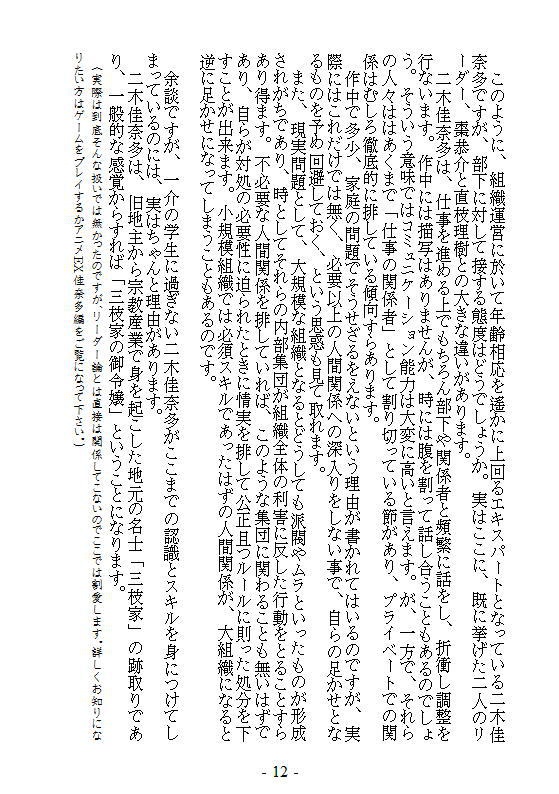 このように、組織運営に於いて年齢相応を遙かに上回るエキスパートとなっている二木佳
奈多ですが、部下に対して接する態度はどうでしょうか。実はここに、既に挙げた二人のリ
ーダー、棗恭介と直枝理樹との大きな違いがあります。
二木佳奈多は、仕事を進める上でもちろん部下や関係者と頻繁に話をし、折衝し調整を
行ないます。作中には描写はありませんが、時には腹を割って話し合うこともあるのでしょ
う。そういう意味ではコミュニケーション能力は大変に高いと言えます。が、一方で、それら
の人々はあくまで「仕事の関係者」として割り切っている節があり、プライベートでの関
係はむしろ徹底的に排している傾向すらあります。
作中で多少、家庭の問題でそうせざるをえないという理由が書かれてはいるのですが、実
際にはこれだけでは無く、必要以上の人間関係への深入りをしない事で、自らの足かせとな
るものを予め回避しておく、という思惑も見て取れます。
また、現実問題として、大規模な組織となるとどうしても派閥やムラといったものが形成
されがちであり、時としてそれらの内部集団が組織全体の利害に反した行動をとることすら
あり得ます。不必要な人間関係を排していれば、このような集団に関わることも無いはずで
あり、自らが対処の必要性に迫られたときに情実を排して公正且つルールに則った処分を下
すことが出来ます。小規模組織では必須スキルであったはずの人間関係が、大組織になると
逆に足かせになってしまうこともあるのです。
余談ですが、一介の学生に過ぎない二木佳奈多がここまでの認識とスキルを身につけてし
まっているのには、実はちゃんと理由があります。
二木佳奈多は、旧地主から宗教産業で身を起こした地元の名士「三枝家」の跡取りであ
り、一般的な感覚からすれば「三枝家の御令嬢」ということになります。
（実際は到底そんな扱いでは無かったのですが、リーダー論とは直接は関係してこないのでここでは割愛します。詳しくお知りにな
りたい方はゲームをプレイするかアニメEX佳奈多編をご覧になって下さい。）
- 12 -